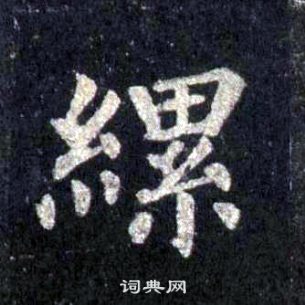 縲
词典网